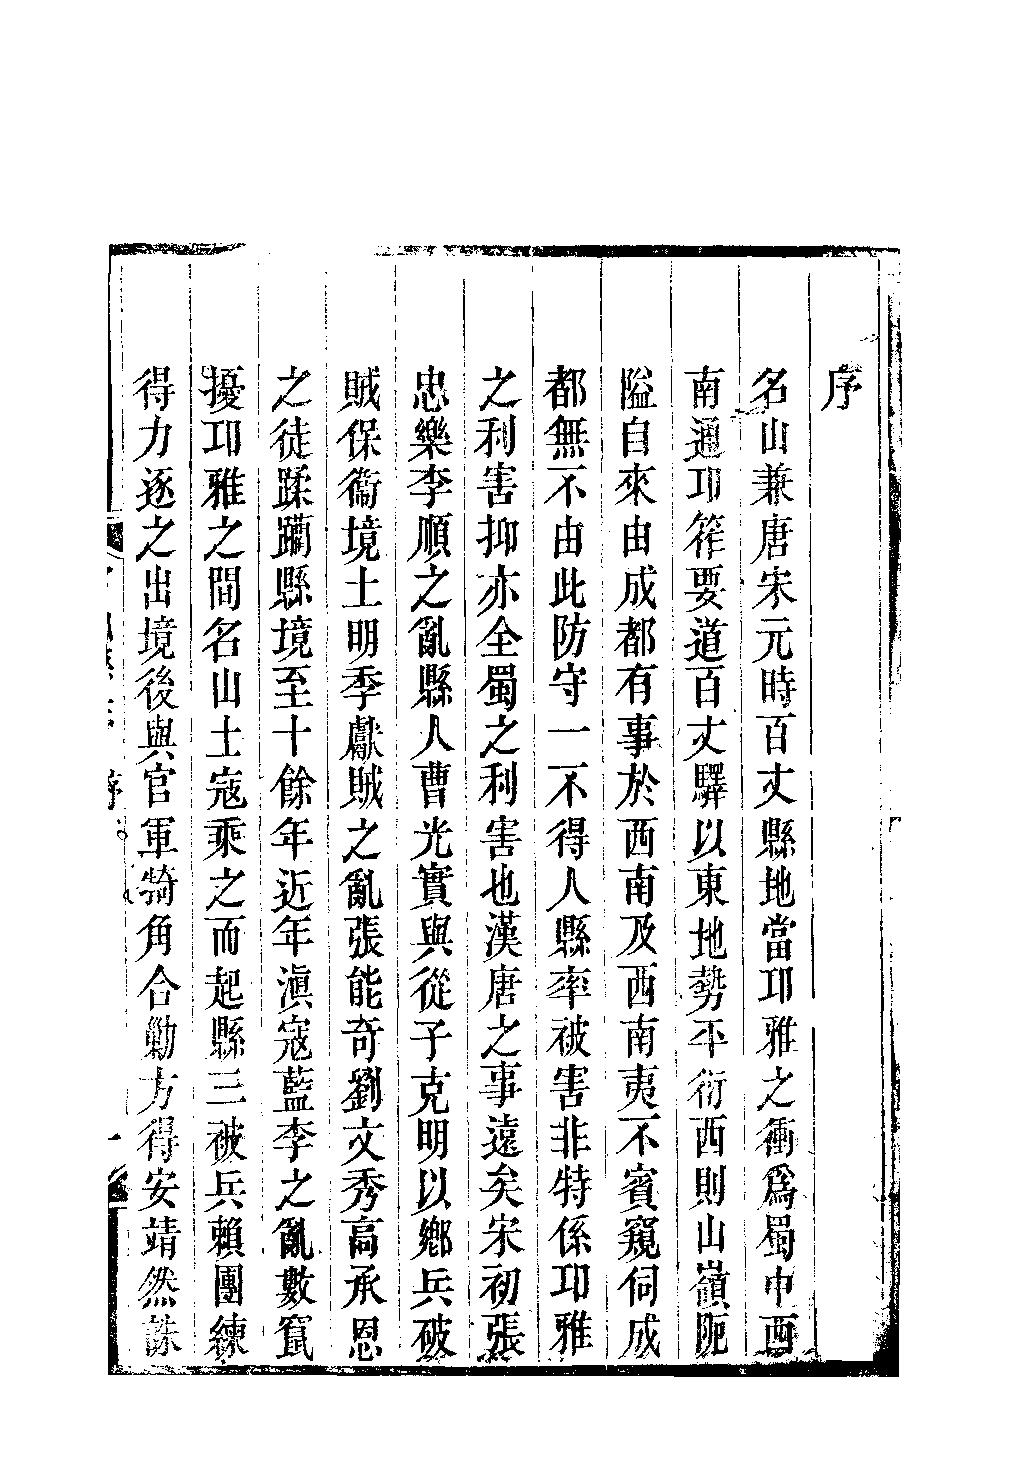 序
名山兼唐宋元時百丈縣地當邛雅之衝爲蜀中西
南通邛筰要道百丈驛以東地勢平衍西則山嶺阨
隘自來由成都有事於西南及西南夷不賓窺伺成
都無不由此防守一不得人縣率被害非特係邛雅
之利害抑亦全蜀之利害也漢唐之事遠矣宋初張
忠樂李順之亂縣人曹光實與從子克明以鄉兵破
賊保衞境土明季獻賊之亂張能奇劉文秀高承恩
之徒蹂躪縣境至十餘年近年滇寇藍李之亂數竄
擾邛雅之間名山土寇乘之而起縣三被兵賴團練
得力逐之出境後與官軍犄角合勦方得安靖然誅
序
一